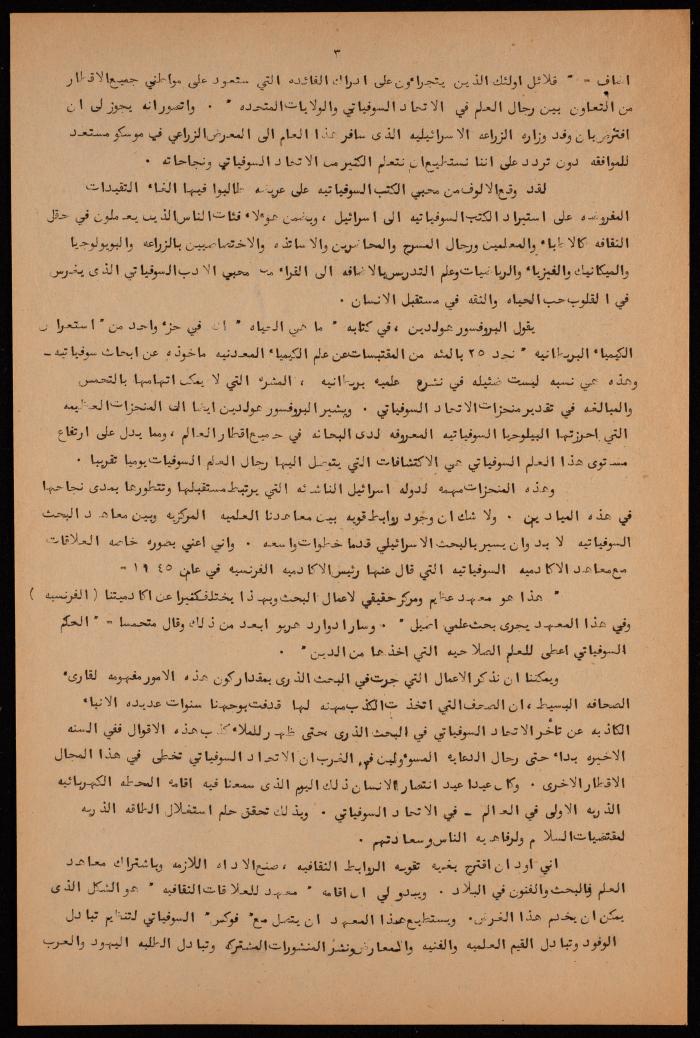 ٣
اضاف - " قلائل اولئك الذين يتجراءون على ادراك الفائده التي ستعود على مواطني جميع الاقطار
من التعاون بين رجال العلم في الاتحاد السوفياتي والولايات المتحده " . واتصور انه يجوز لى ان
افترض بان وفد وزاره الزراعه الاسرائيليه الذى سافر هذا العام الى المعرض الزراعي في موسكو مستعد
للموافقه دون تردد على اننا نستطيع ان نتعلم الكثير من الاتحاد السوفياتي ونجاحاته .
لقد وقع الالوف من محبي الكتب السوفياتيه على عريضه طالبوا فيها الغاء التقيدات
المفروضه على استيراد الكتب السوفياتيه الى اسرائيل ، وبضمن هوءلاء فئات الناس الذين يعملون في حقل
الثقافه كالاطباء والمعلمين ورجال المسرح والمحاضرين والاساتذه والاختصاصيين بالزراعه والبويولوجيا
والميكانيك والفيزياء والرياضيات وعلم التدريس بالاضافه الى القراء من محبي الادب السوفياتي الذى يغرس
في القلوب حب الحياه والثقه في مستقبل الانسان .
يقول البروفسور هولدين ، في كتابه " ما هي الحياه " ان في جزء واحد من " استعراض
الكيمياء البريطانيه " نجد ٢٥ بالمئه من المقتبسات عن علم الكيمياء المعدنيه ماخوذه عن ابحاث سوفياتيه -
وهذه هي نسبه ليست ضئيله في نشرة علميه بريطانيه ، النشره التي لا يمكن اتهامها بالتحمس
والمبالغه في تقدير منجزات الاتحاد السوفياتي . ويشير البروفسور هولدين ايضا الى المنجزات العظيمه
التي احرزتها البيلوجيا السوفياتيه المعروفه لدى البحاثه في جميع اقطار العالم ، ومما يدل على ارتفاع
مستوى هذا العلم السوفياتي هي الاكتشافات التي يتوصل اليها رجال العلم السوفيات يوميا تقريبا .
وهذه المنجزات مهمه لدوله اسرائيل الناشئه التي يرتبط مستقبلها وتتطورها بمدى نجاحها
في هذه الميادين . ولا شك ان وجود روابط قويه بين معاهدنا العلميه المركزيه وبين معاهد البحث
السوفياتيه لا بد وان يسير بالبحث الاسرائيلي قدما خطوات واسعه . واني اعني بصوره خاصه العلاقات
مع معاهد الاكادميه السوفياتيه التي قال عنها رئيس الاكادميه الفرنسيه في عام ١٩٤٥ -
" هذا هو معهد عظيم ومركز حقيقي لاعمال البحث وبهذا يختلف كثيرا عن اكادميتنا ( الفرنسيه )
وفي هذا المعهد يجرى بحث علمي اصيل " . وسار ادوارد هريو ابعد من ذلك وقال متحمسا - " الحكم
السوفياتي اعطى للعلم الصلاحيه التي اخذها من الدين " .
ويمكننا ان نذكر الاعمال التي جرت في البحث الذرى بمقدار كون هذه الامور مفهومه لقارىء
الصحافه البسيط ، ان الصحف التي اتخذت الكذب مهنه لها قذفت بوجهنا سنوات عديده الانباء
الكاذبه عن تأخر الاتحاد السوفياتي في البحث الذرى حتى ظهر للملاء كذب هذه الاقوال ففي السنه
الاخيره بداء حتى رجال الدعايه المسوءولين في الغرب ان الاتحاد السوفياتي تخطى في هذا المجال
الاقطار الاخرى . وكان عيدا عيد انتصار الانسان ذلك اليوم الذى سمعنا فيه اقامه المحطه الكهربائيه
الذريه الاولى في العالم - في الاتحاد السوفياتي . وبذلك تحقق حلم استغلال الطاقه الذريه
لمقتضيات السلام ولرفاهيه الناس وسعادتهم .
اني اود ان اقترح بغيه تقويه الروابط الثقافيه ، صنع الاداه اللازمه وباشتراك معاهد
العلم والبحث والفنون في البلاد . ويبدو لي ان اقامه " معهد للعلاقات الثقافيه " هو الشكل الذى
يمكن ان يخدم هذا الغرض . ويستطيع هذا المعهد ان يتصل مع " فوكس " السوفياتي لتنظيم تبادل
الوفود وتبادل القيم العلميه والفنيه والمعارض ونشر المنشورات المشتركه وتبادل الطلبه اليهود والعرب